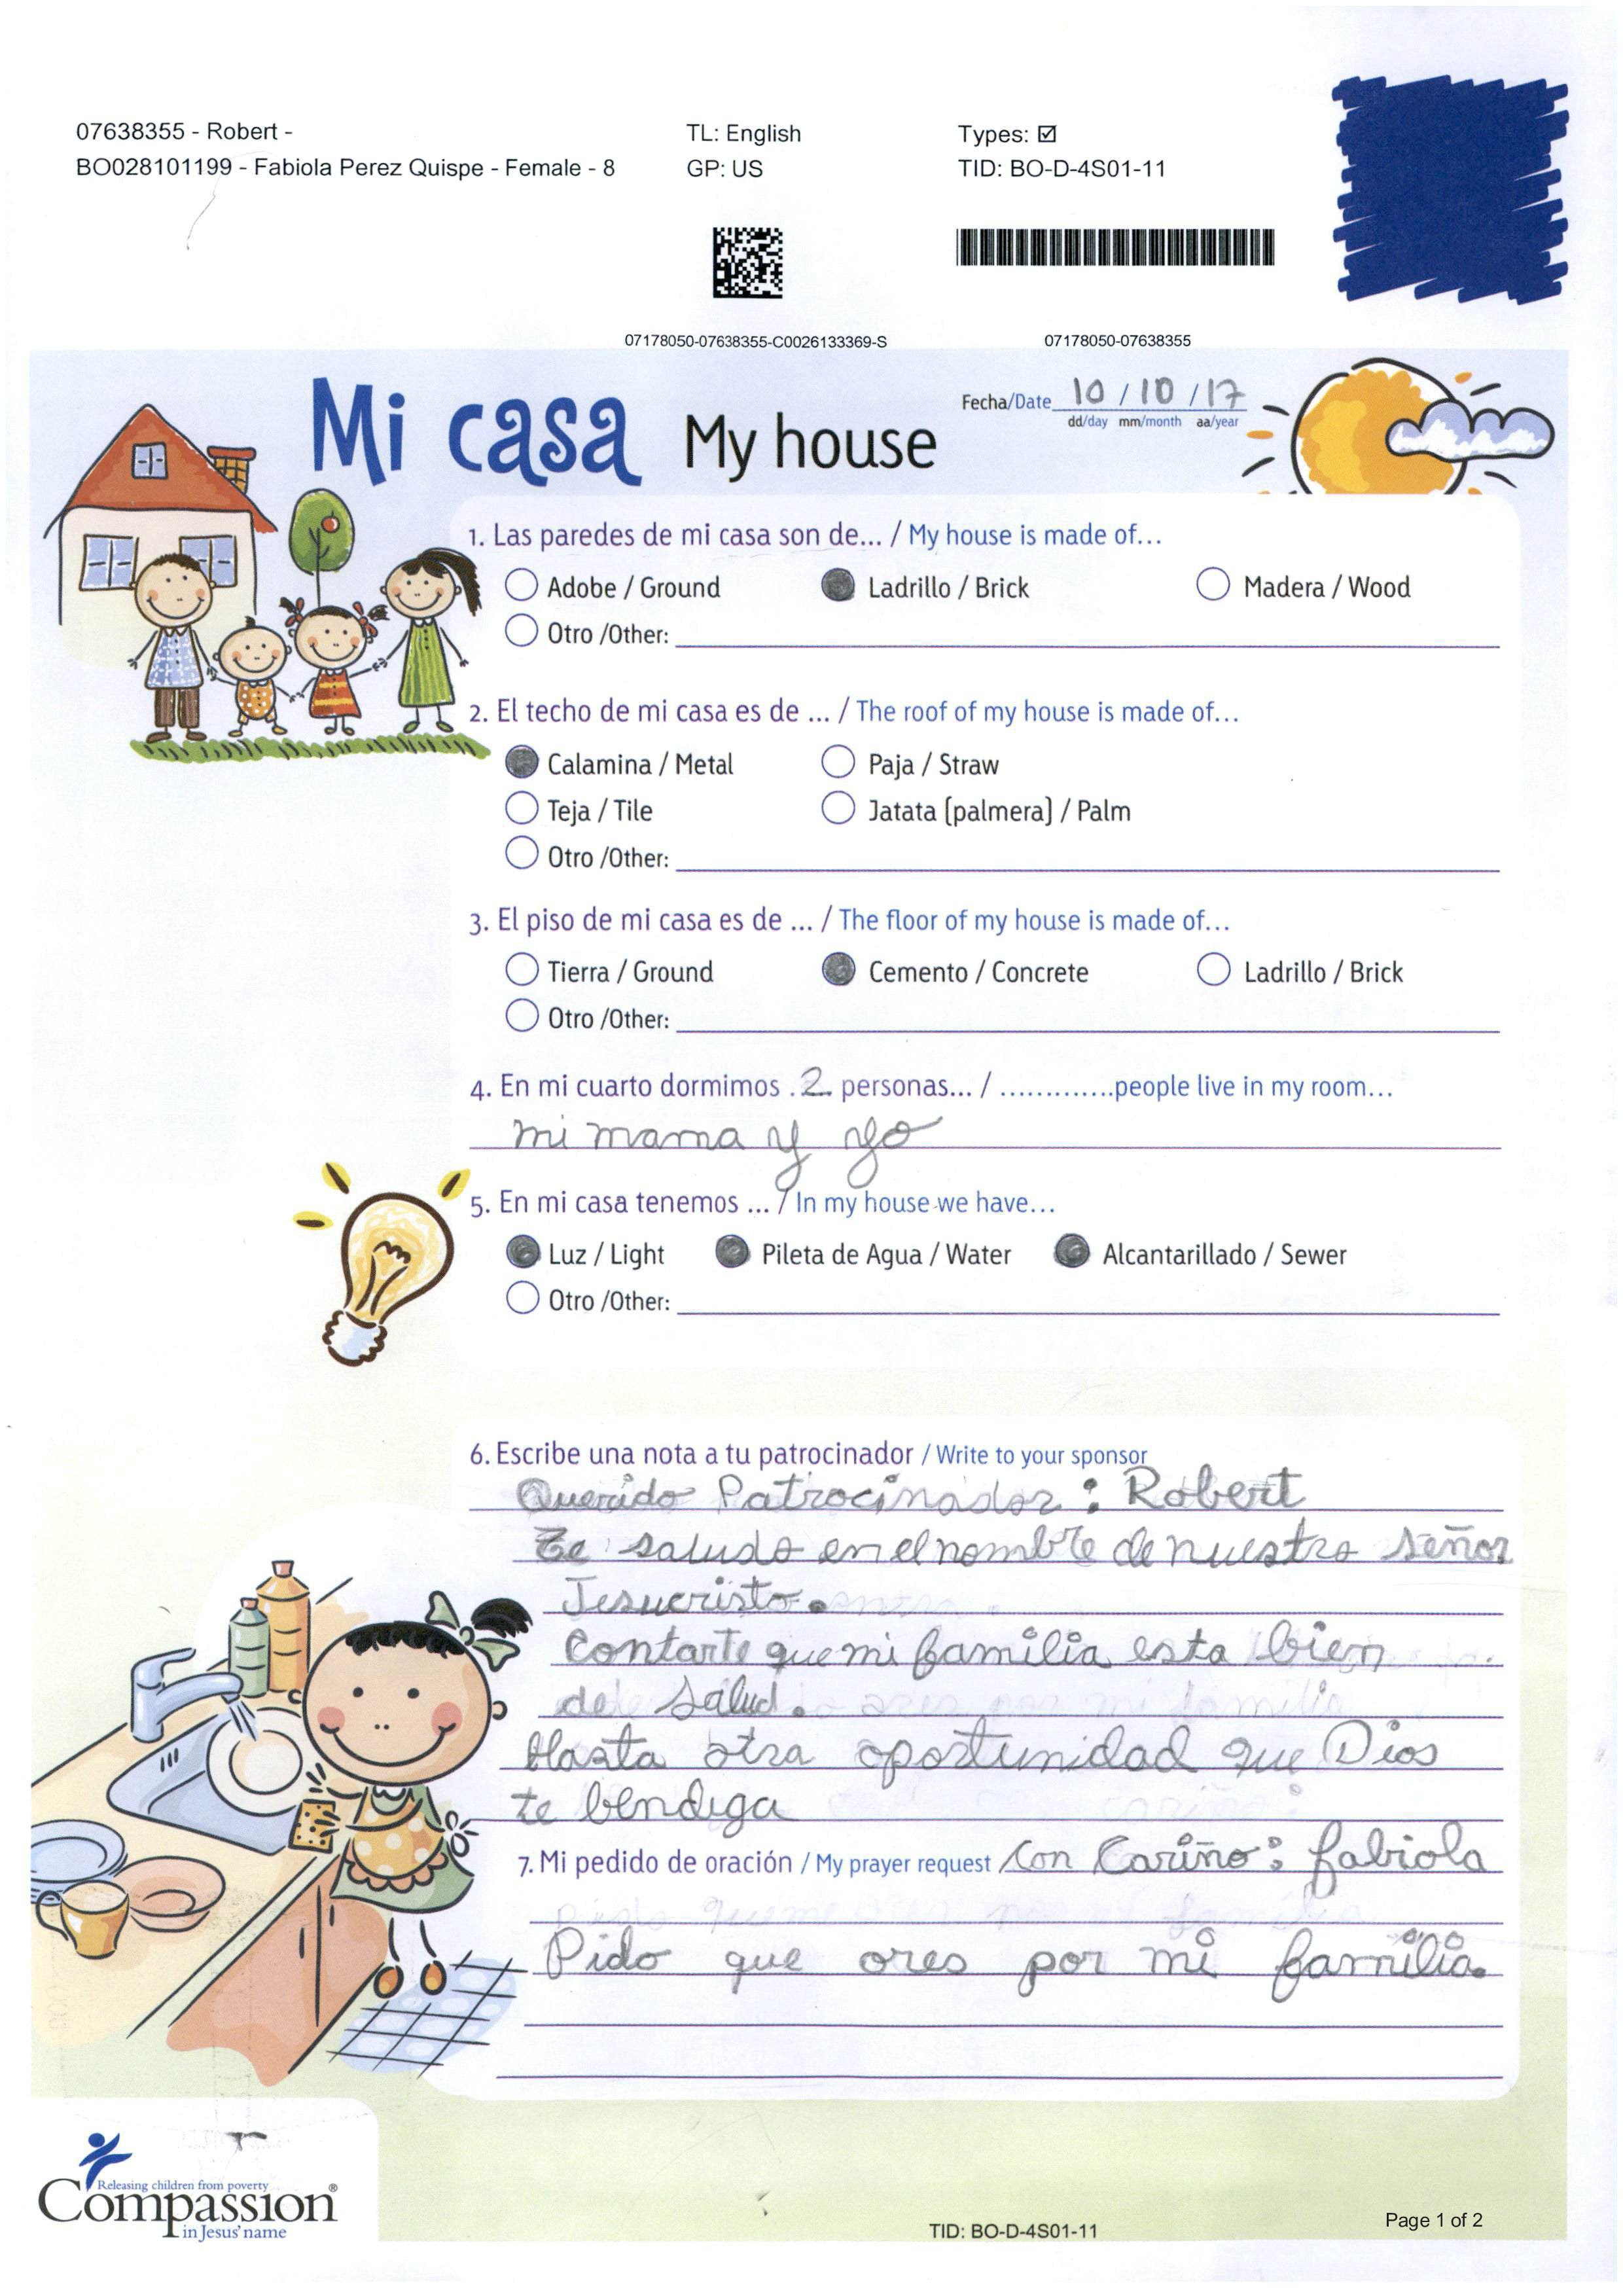 07638355 - Robert -
BO028101199 - Fabiola Perez Quispe - Female - 8
TL: English
GP: US
Types: ☑
TID: BO-D-4S01-11
07178050-07638355-C0026133369-S
07178050-07638355
Mi casa My house
Fecha/Date 10 / 10 / 17
dd/day mm/month aa/year
1. Las paredes de mi casa son de... / My house is made of...
Adobe / Ground Ladrillo / Brick Madera / Wood
Otro /Other:
2. El techo de mi casa es de ... / The roof of my house is made of...
Calamina / Metal Paja / Straw
Teja / Tile Jatata (palmera) / Palm
Otro /Other:
3. El piso de mi casa es de ... / The floor of my house is made of...
Tierra / Ground Cemento / Concrete Ladrillo / Brick
Otro /Other:
4. En mi cuarto dormimos .2. personas... / .............people live in my room...
mi mama y yo
5. En mi casa tenemos ... / In my house we have...
Luz / Light Pileta de Agua / Water Alcantarillado / Sewer
Otro /Other:
6. Escribe una nota a tu patrocinador / Write to your sponsor
Querido Patrocinador: Robert
Te saludo en el nombre de nuestro señor
Jesucristo.
Contarte que mi familia esta bien
de salud.
Hasta otra oportunidad que Dios
te bendiga
7. Mi pedido de oración / My prayer request Con Cariño: fabiola
Pido que ores por mi familia.
Releasing children from poverty
Compassion®
in Jesus' name
TID: BO-D-4S01-11
Page 1 of 2